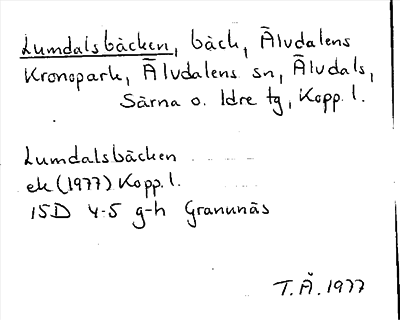 Lumdalsbäcken, bäck, Älvdalens
Kronopark, Älvdalens sn, Älvdals,
Särna o. Idre tg, Kopp. l.
Lumdalsbäcken
ek (1977) Kopp. l.
15D 4-5 g-h Granunäs
T.Å. 1977